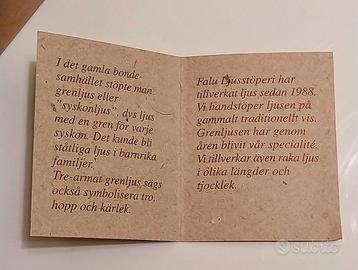 I det gamla bonde-
samhället stöpte man
grenljus eller
"syskonljus", dvs ljus
med en gren för varje
syskon. Det kunde bli
ståtliga ljus i barnrika
familjer.
Tre-armat grenljus sägs
också symbolisera tro,
hopp och kärlek.
Falu Ljusstöperi har
tillverkat ljus sedan 1988.
Vi handstöper ljusen på
gammalt traditionellt vis.
Grenljusen har genom
åren blivit vår specialité.
Vi tillverkar även raka ljus
i olika längder och
tjocklek.
subito